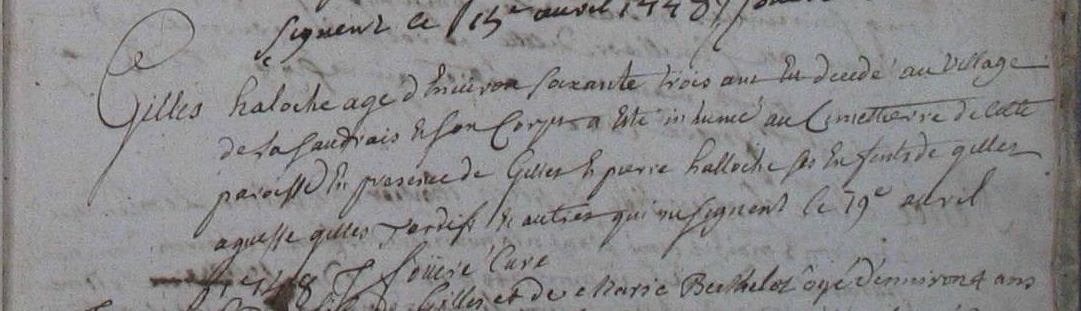 signent le 15e avril 1748
Gilles haloche age d'Environ soixante trois ans Est decedé au Village
de la Gaudrais Et son Corps a Esté inhumé au Cimettierre de cette
paroisse En presence de Gilles Et pierre halloche ses Enfents de gilles
aguesse gilles Tardif Et autres qui ne signent le 19e avril
1748 Curé
Gilles et de Marie Berthelot âgé d'environ 4 ans